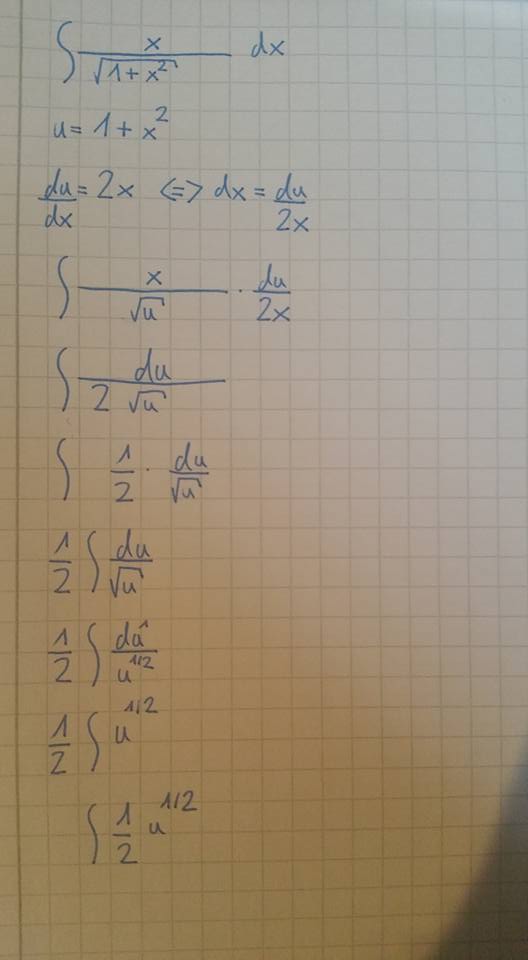 ∫ x/√(1+x²) dx
u = 1 + x²
du/dx = 2x <=> dx = du/2x
∫ x/√u · du/2x
∫ du/(2 √u)
∫ 1/2 · du/√u
1/2 ∫ du/√u
1/2 ∫ du/u^(1/2)
1/2 ∫ u^(1/2)
∫ 1/2 u^(1/2)